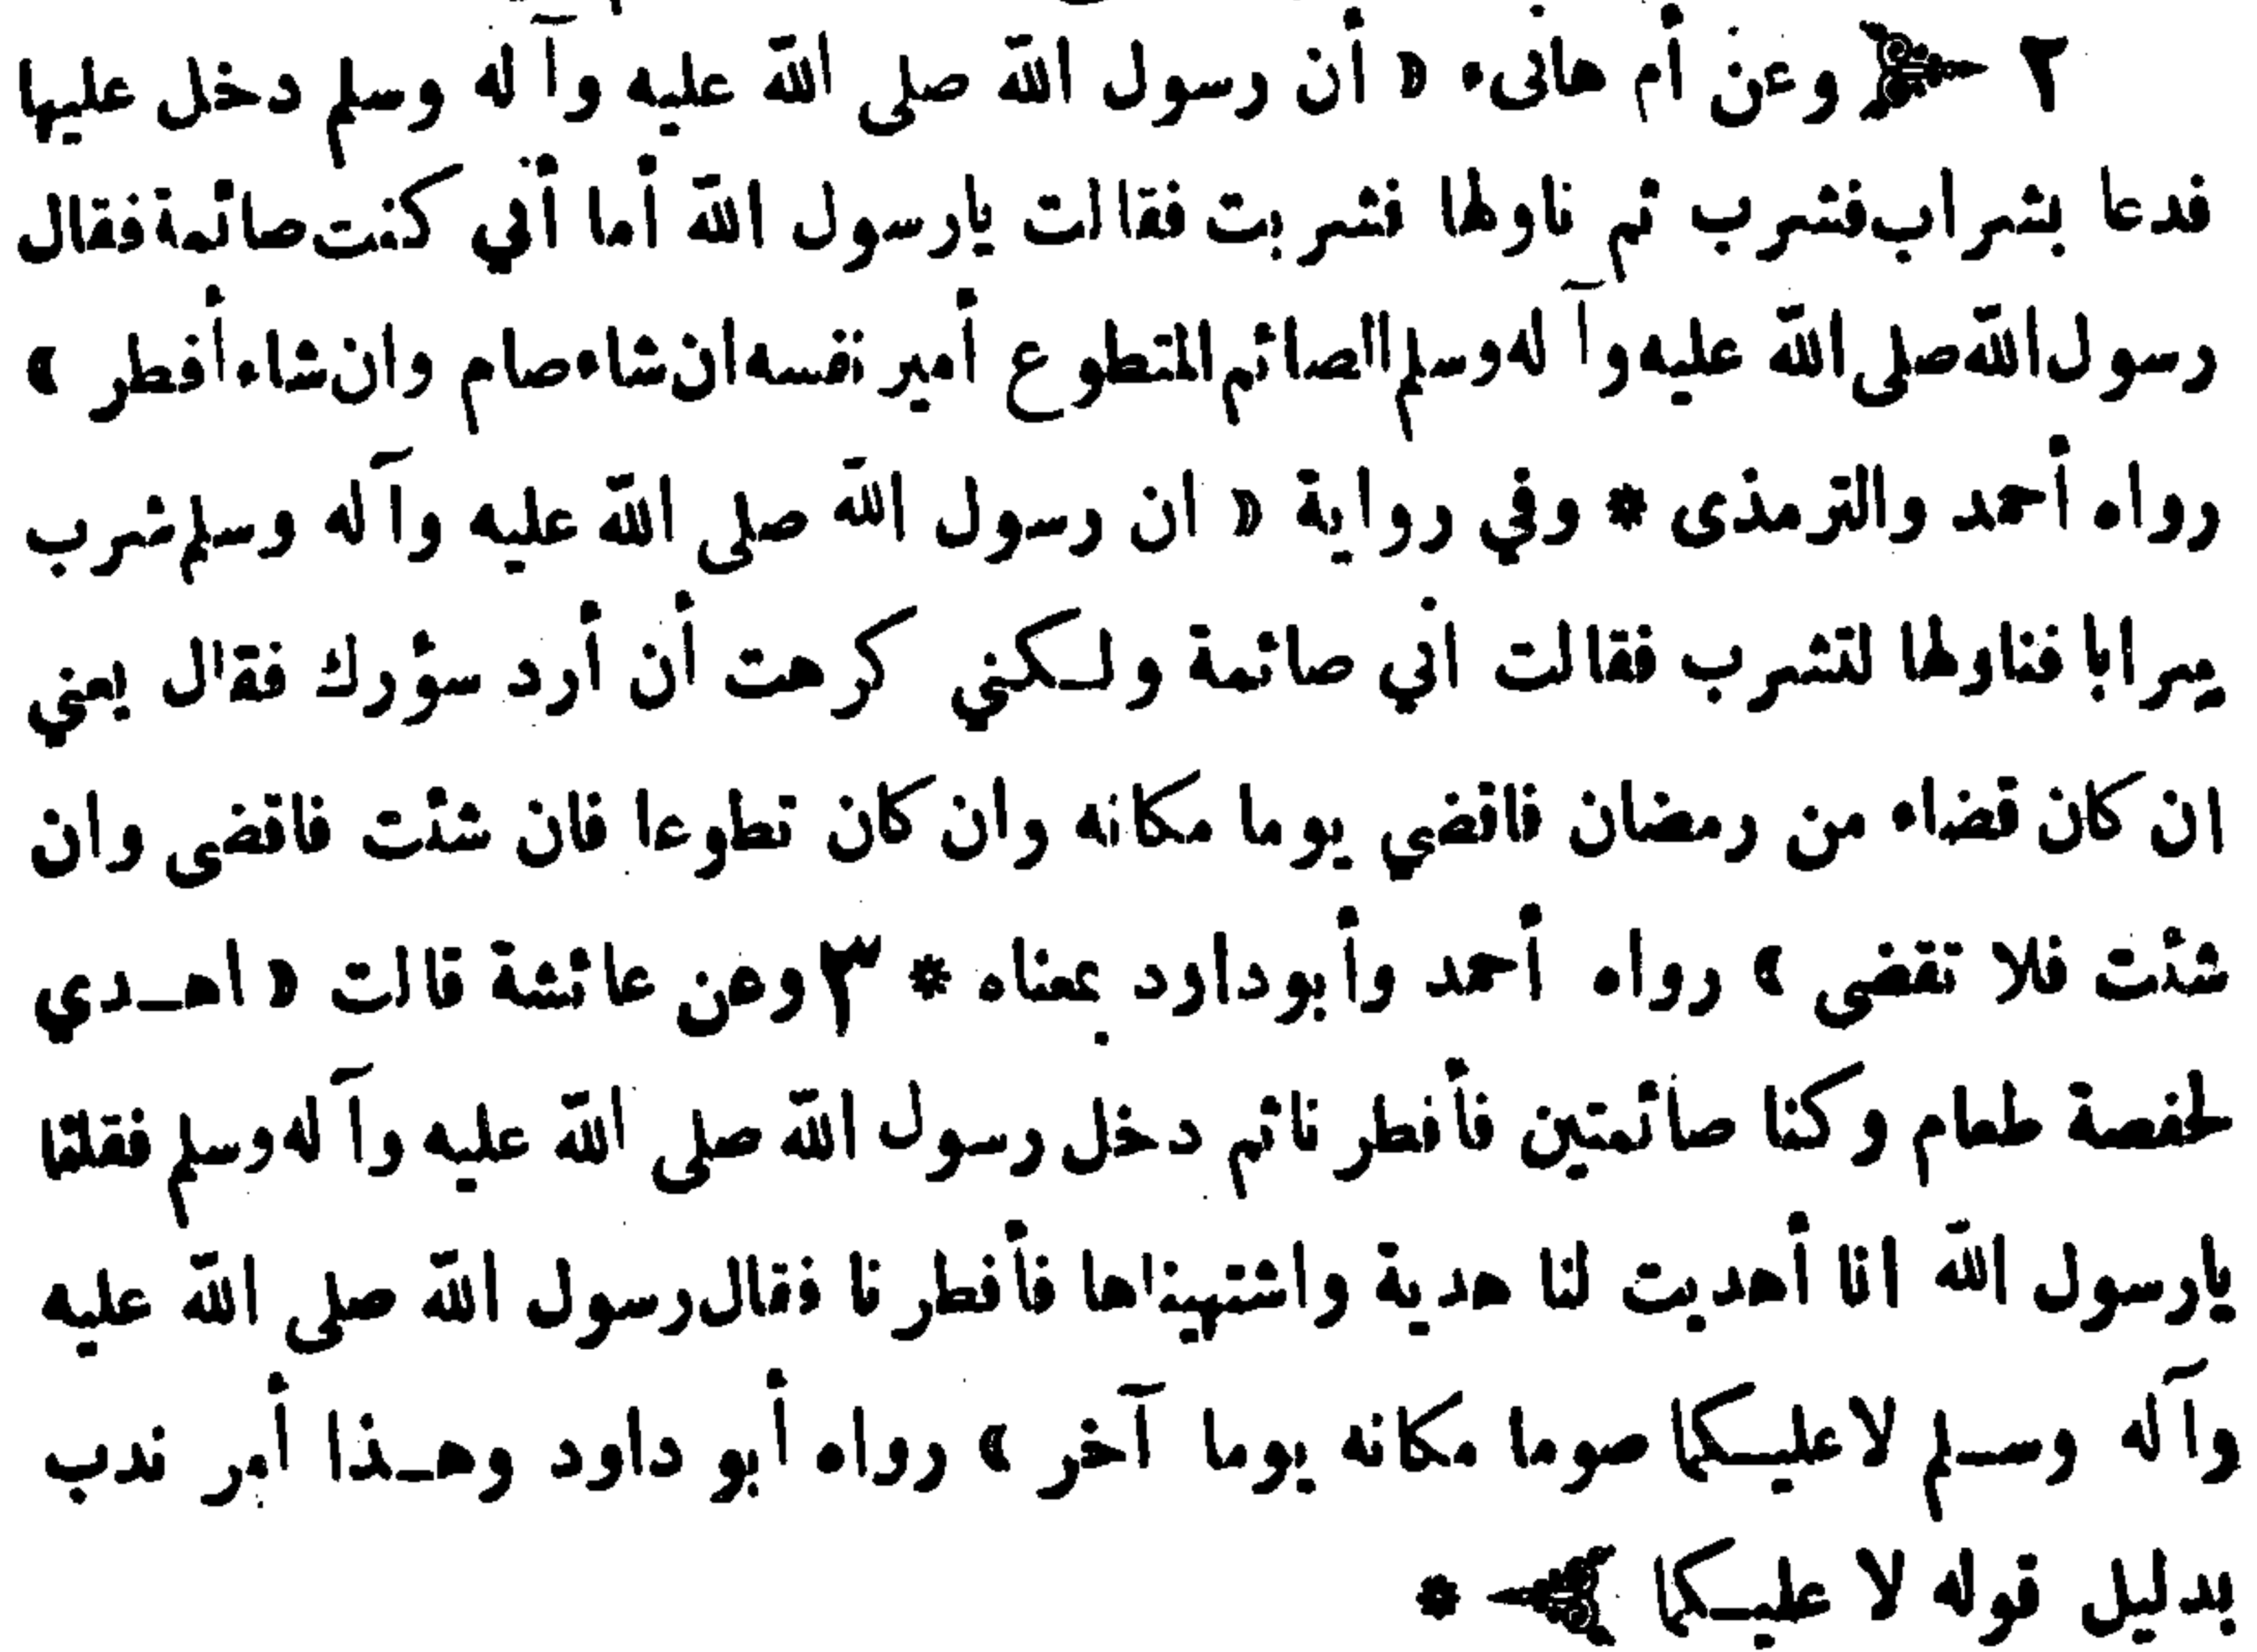 ٢ ﴿ وعن أم هانىء « أن رسول الله صلى الله عليه وآله وسلم دخل عليها
فدعا بشراب فشرب ثم ناولها فشربت فقالت يارسول الله أما أني كنت صائمة فقال
رسول الله صلى الله عليه وآله وسلم الصائم المتطوع أمير نفسه ان شاء صام وان شاء أفطر »
رواه أحمد والترمذى * وفي رواية « ان رسول الله صلى الله عليه وآله وسلم شرب
شرابا فناولها لتشرب فقالت اني صائمة ولـكني كرهت أن أرد سؤرك فقال يعني
ان كان قضاء من رمضان فاقضي يوما مكانه وان كان تطوعا فان شئت فاقضى وان
شئت فلا تقضى » رواه أحمد وأبو داود بمعناه * ٣ وعن عائشة قالت « اهـدي
لحفصة طعام وكنا صائمتين فأفطرنا ثم دخل رسول الله صلى الله عليه وآله وسلم فقلنا
يارسول الله انا أهديت لنا هدية واشتهيناها فأفطرنا فقال رسول الله صلى الله عليه
وآله وسـلم لا عليـكما صوما مكانه يوما آخر » رواه أبو داود وهـذا أمر ندب
بدليل قوله لا عليـكما ﴾ *